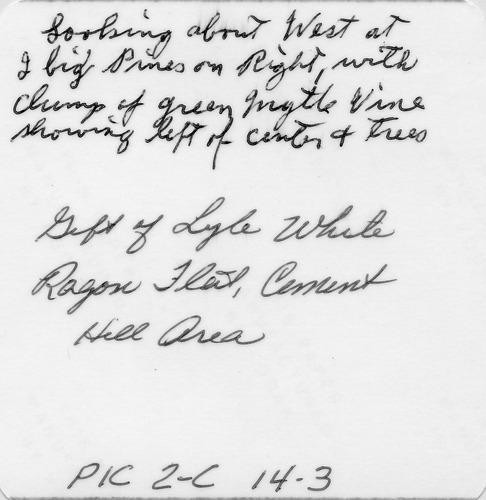 Looking about West at
2 big Pines on Right, with
clump of green Mytle Vine
showing left of center & trees
Gift of Lyle White
Ragon Flat, Cement
Hill Area
PIC 2-C 14-3